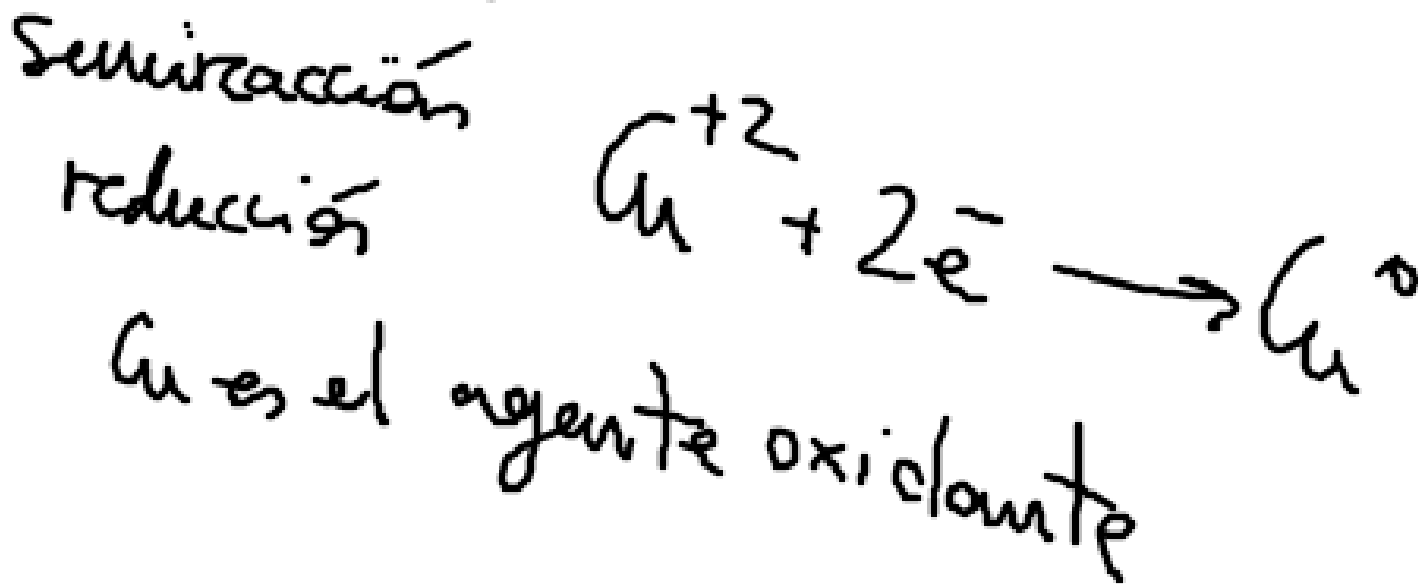 semireacción
reducción
Cu⁺² + 2e⁻ → Cu⁰
Cu es el agente oxidante